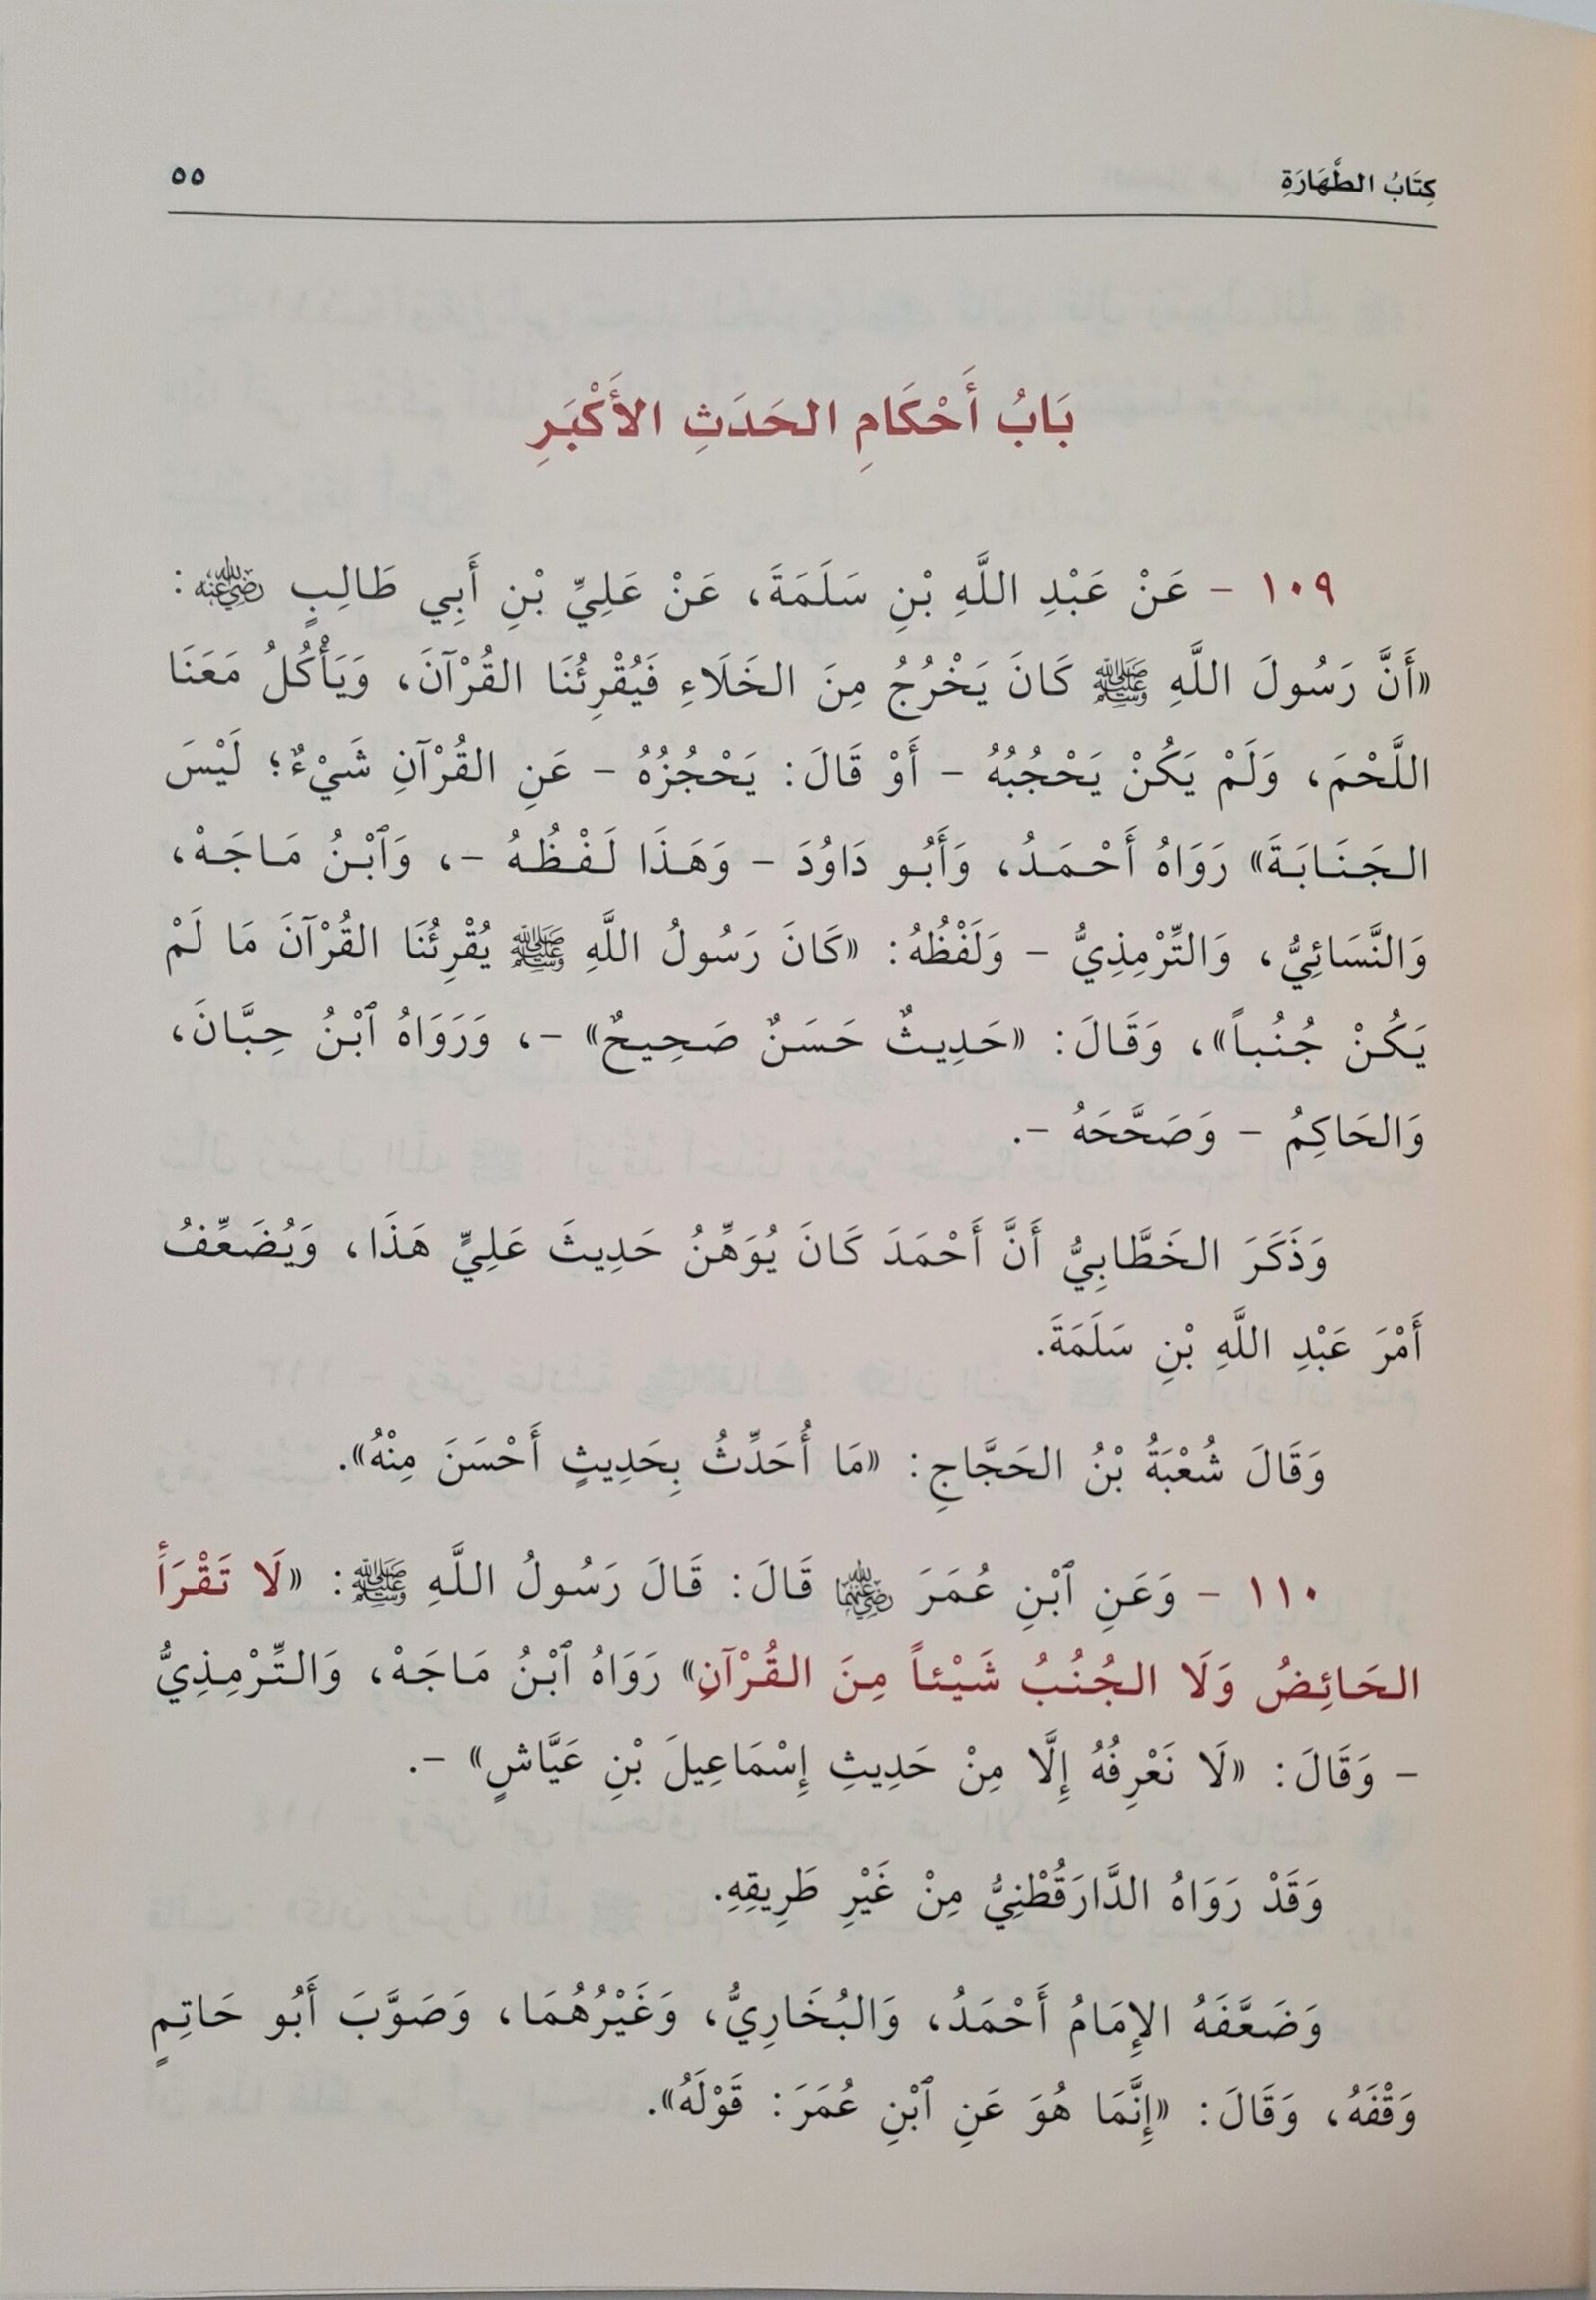 كِتَابُ الطَّهَارَةِ ٥٥
بَابُ أَحْكَامِ الحَدَثِ الأَكْبَرِ
١٠٩ - عَنْ عَبْدِ اللَّهِ بْنِ سَلَمَةَ، عَنْ عَلِيِّ بْنِ أَبِي طَالِبٍ رضي الله عنه:
«أَنَّ رَسُولَ اللَّهِ ﷺ كَانَ يَخْرُجُ مِنَ الخَلَاءِ فَيُقْرِئُنَا القُرْآنَ، وَيَأْكُلُ مَعَنَا
اللَّحْمَ، وَلَمْ يَكُنْ يَحْجُبُهُ - أَوْ قَالَ: يَحْجُزُهُ - عَنِ القُرْآنِ شَيْءٌ؛ لَيْسَ
الجَنَابَةَ» رَوَاهُ أَحْمَدُ، وَأَبُو دَاوُدَ - وَهَذَا لَفْظُهُ -، وَٱبْنُ مَاجَهْ،
وَالنَّسَائِيُّ، وَالتِّرْمِذِيُّ - وَلَفْظُهُ: «كَانَ رَسُولُ اللَّهِ ﷺ يُقْرِئُنَا القُرْآنَ مَا لَمْ
يَكُنْ جُنُباً»، وَقَالَ: «حَدِيثٌ حَسَنٌ صَحِيحٌ» -، وَرَوَاهُ ٱبْنُ حِبَّانَ،
وَالحَاكِمُ - وَصَحَّحَهُ -.
وَذَكَرَ الخَطَّابِيُّ أَنَّ أَحْمَدَ كَانَ يُوَهِّنُ حَدِيثَ عَلِيٍّ هَذَا، وَيُضَعِّفُ
أَمْرَ عَبْدِ اللَّهِ بْنِ سَلَمَةَ.
وَقَالَ شُعْبَةُ بْنُ الحَجَّاجِ: «مَا أُحَدِّثُ بِحَدِيثٍ أَحْسَنَ مِنْهُ».
١١٠ - وَعَنِ ٱبْنِ عُمَرَ رضي الله عنهما قَالَ: قَالَ رَسُولُ اللَّهِ ﷺ: «لَا تَقْرَأُ
الحَائِضُ وَلَا الجُنُبُ شَيْئاً مِنَ القُرْآنِ» رَوَاهُ ٱبْنُ مَاجَهْ، وَالتِّرْمِذِيُّ
- وَقَالَ: «لَا نَعْرِفُهُ إِلَّا مِنْ حَدِيثِ إِسْمَاعِيلَ بْنِ عَيَّاشٍ» -.
وَقَدْ رَوَاهُ الدَّارَقُطْنِيُّ مِنْ غَيْرِ طَرِيقِهِ.
وَضَعَّفَهُ الإِمَامُ أَحْمَدُ، وَالبُخَارِيُّ، وَغَيْرُهُمَا، وَصَوَّبَ أَبُو حَاتِمٍ
وَقْفَهُ، وَقَالَ: «إِنَّمَا هُوَ عَنِ ٱبْنِ عُمَرَ: قَوْلَهُ».